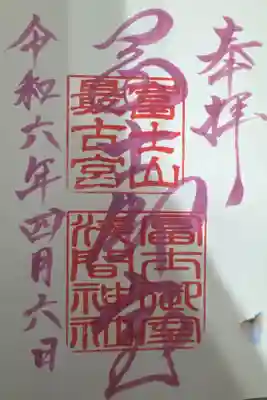 奉拝
冨士御室
富士山
最古宮
冨士御室
浅間神社
令和六年四月六日